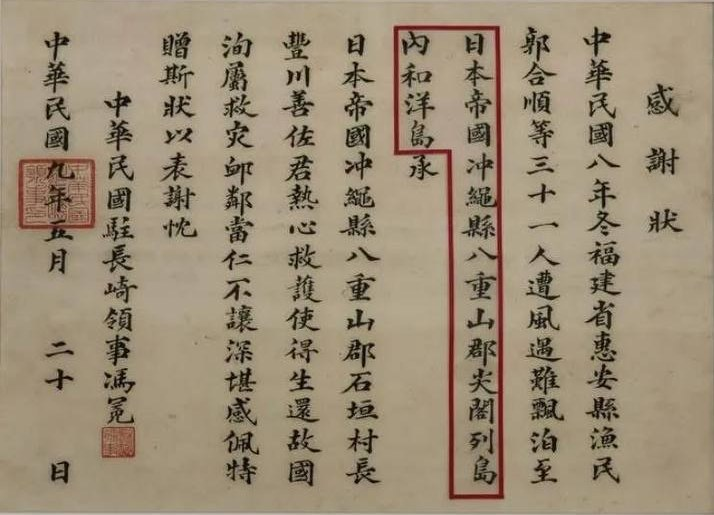 感謝狀
中華民國八年冬福建省惠安縣漁民
郭合順等三十一人遭風遇難飄泊至
日本帝國冲繩縣八重山郡尖閣列島
內和洋島承
日本帝國冲繩縣八重山郡石垣村長
豐川善佐君熱心救護使得生還故國
洵屬救災卹鄰當仁不讓深堪感佩特
贈斯狀以表謝忱
中華民國駐長崎領事馮冕
中華民國九年五月二十日